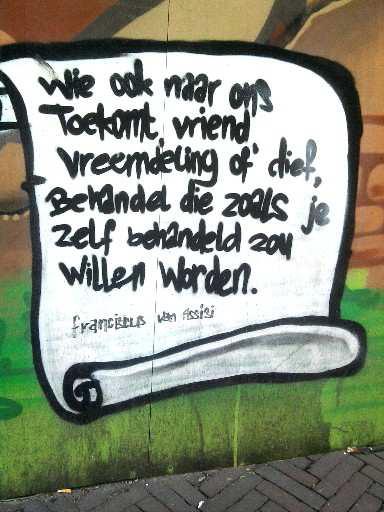 Wie ook naar ons
Toekomt, vriend
Vreemdeling of dief,
Behandel die zoals je
Zelf behandeld zou
Willen Worden.
franciscus van Assisi